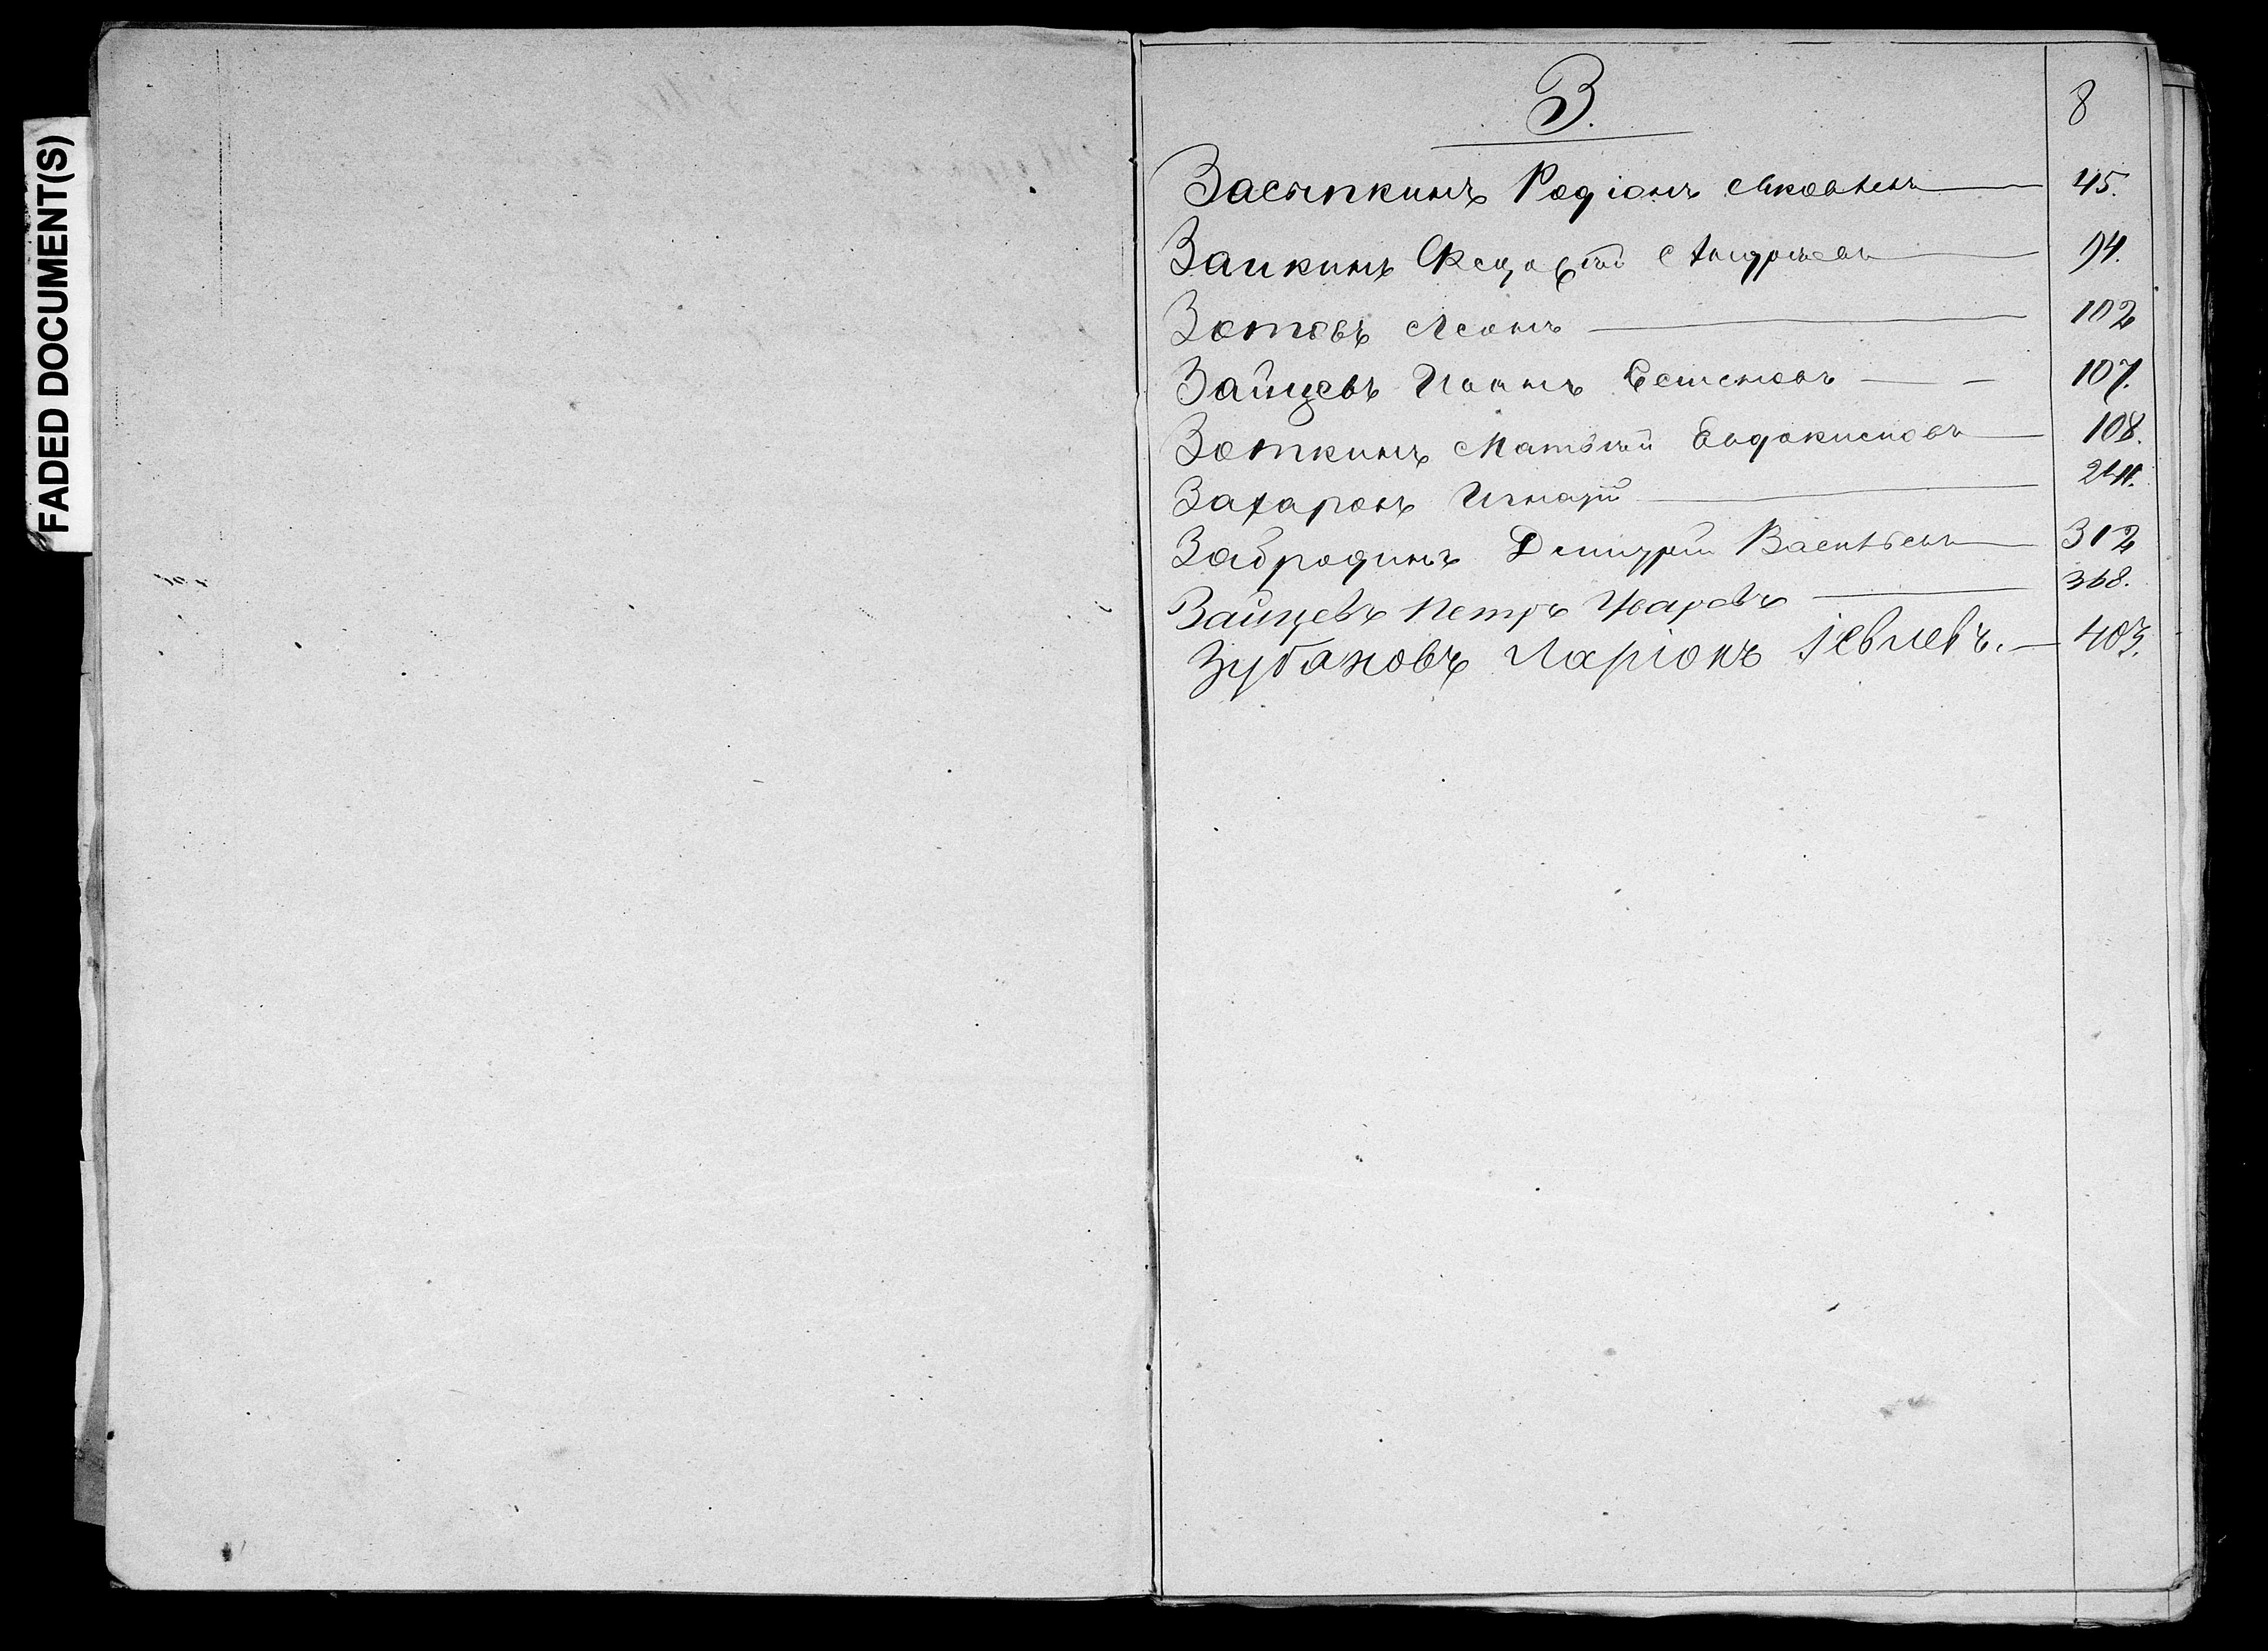 FADED DOCUMENT(S)
З. 8
Засыпкинъ Родіонъ Яковлевъ 45.
Заикинъ Андреевъ 94.
Зотовъ Леонъ 102
Зайцевъ Иванъ Семеновъ 107.
Зоткинъ Матвѣй Евдокимовъ 108.
Захаровъ Игнатій
Забродинъ Дмитрій Васильевъ 312
Зайцевъ Петръ Уваровъ 368.
Зубановъ Ларіонъ Іевлевъ. 403.